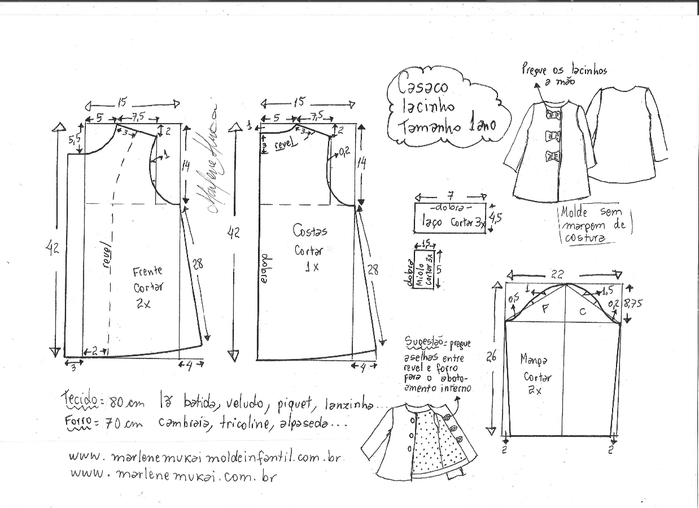 Casaco
lacinho
Tamanho 1 ano
Pregue os lacinhos
a mão
15
5
7,5
5,5
3
2
1
14
42
revel
28
Frente
Cortar
2x
2
3
4
Marlene Mukai
15
5
7,5
1
2
3
2
revel
0,2
14
42
Costas
Cortar
1x
dobra
28
4
7
dobra
laço Cortar 3x
4,5
1,5
dobra
Miolo
cortar 3x
5
Molde sem
margem de
costura
22
1
1,5
0,5
0,2
8,75
F
C
26
Manga
Cortar
2x
2
2
Sugestão= pregue
aselhas entre
revel e forro
para o aboto-
amento interno
Tecido= 80 cm lã batida, veludo, piquet, lanzinha...
Forro= 70 cm cambraia, tricoline, alpaseda...
www.marlenemukaimoldeinfantil.com.br
www.marlenemukai.com.br